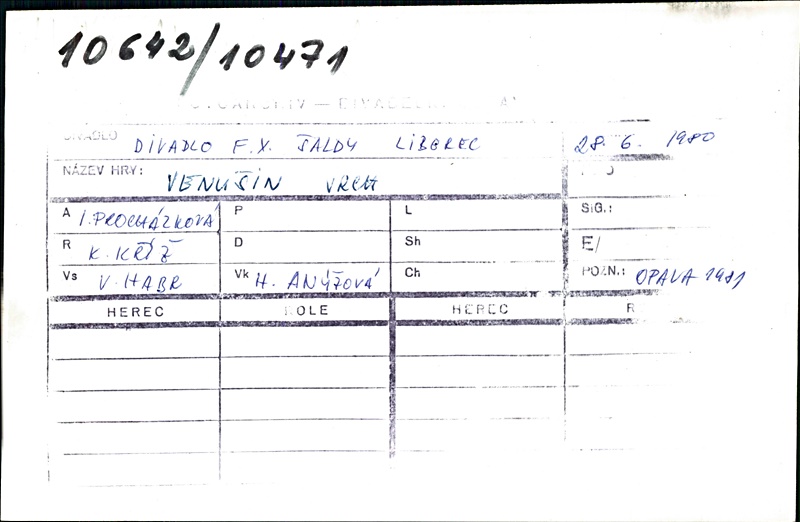 10642/10471
DIVADLO F.X. ŠALDY LIBEREC 28. 6. 1980
NÁZEV HRY: VENUŠIN VRCH
A I. PROCHÁZKOVÁ P L SIG.:
R K. KŘÍŽ D Sh E/
Vs V. HABR Vk H. ANÝŽOVÁ Ch POZN.: OPAVA 1981
HEREC ROLE HEREC R